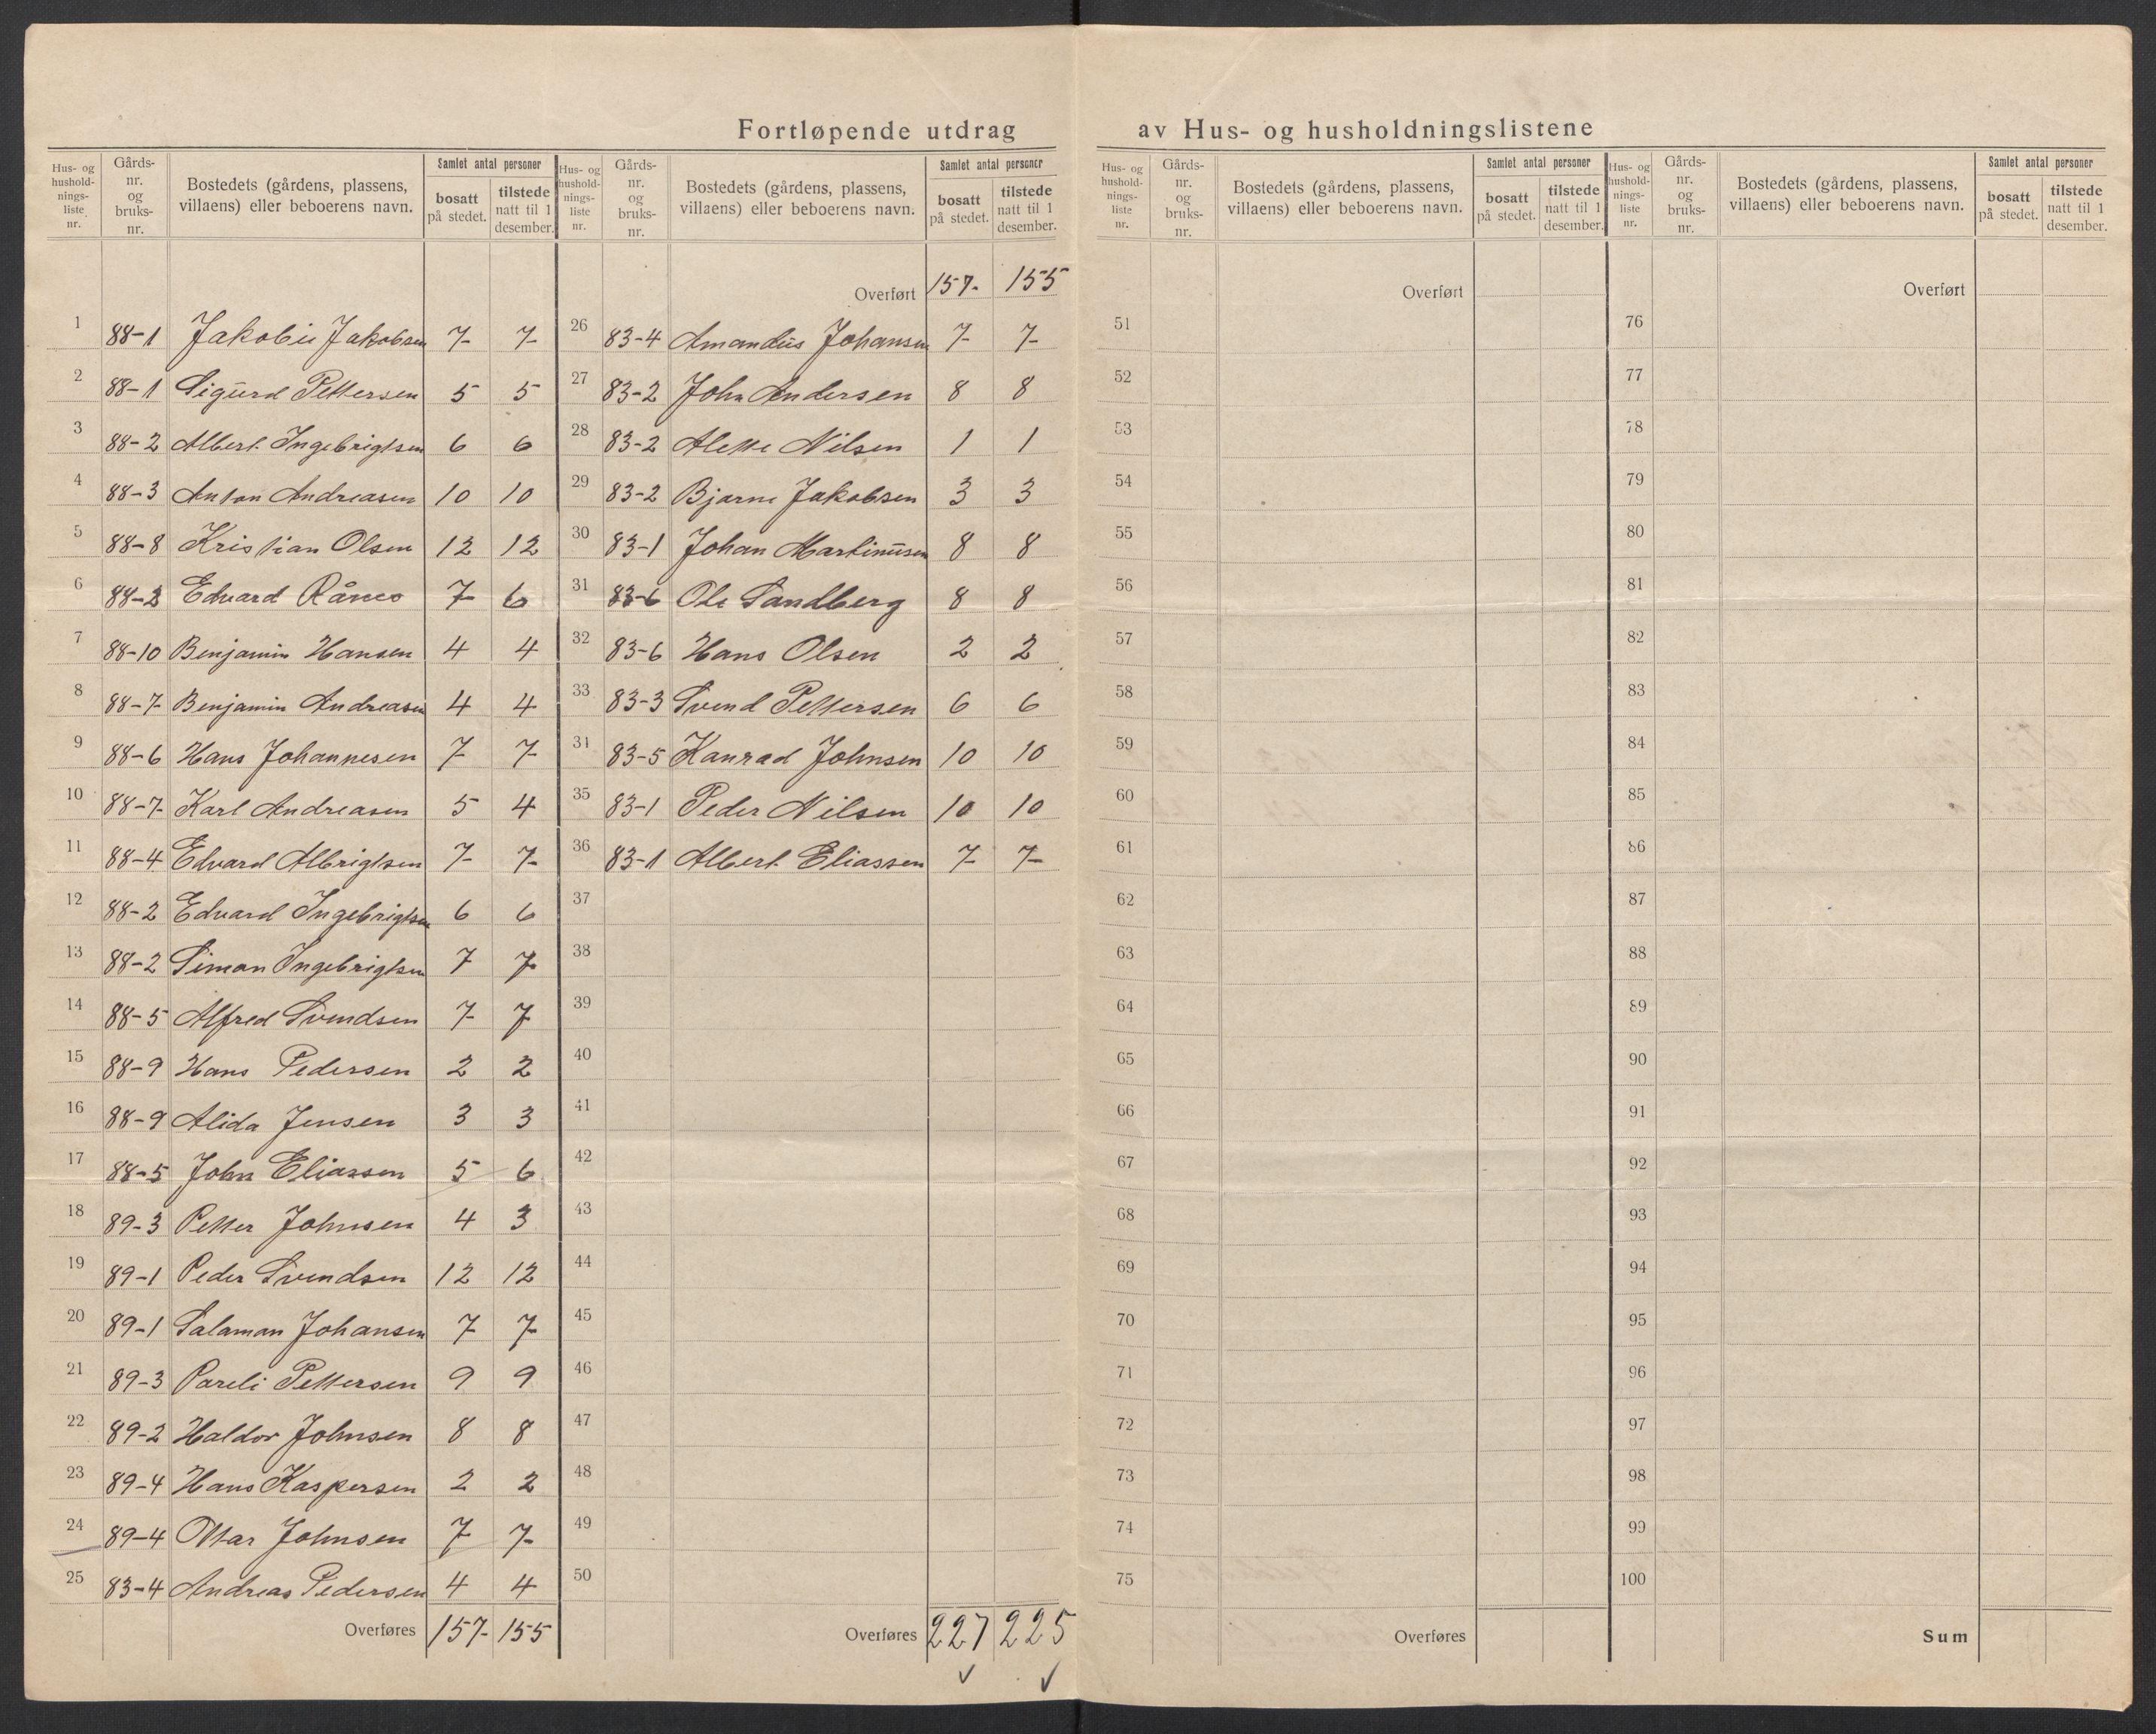 Fortløpende utdrag av Hus- og husholdningslistene
Hus- og hushold-nings-liste nr. Gårds-nr. og bruks-nr. Bostedets (gårdens, plassens, villaens) eller beboerens navn. Samlet antal personer bosatt på stedet. tilstede natt til 1 desember.
1 88-1 Jakobie Jakobsen 7 7
2 88-1 Sigurd Pettersen 5 5
3 88-2 Albert Ingebrigtsen 6 6
4 88-3 Anton Andreasen 10 10
5 88-8 Kristian Olsen 12 12
6 88-2 Edvard Rånes 7 6
7 88-10 Benjamin Hansen 4 4
8 88-7 Benjamin Andreasen 4 4
9 88-6 Hans Johannesen 7 7
10 88-7 Karl Andreasen 5 4
11 88-4 Edvard Albrigtsen 7 7
12 88-2 Edvard Ingebrigtsen 6 6
13 88-2 Simon Ingebrigtsen 7 7
14 88-5 Alfred Svendsen 7 7
15 88-9 Hans Pedersen 2 2
16 88-9 Alida Jensen 3 3
17 88-5 John Eliassen 5 6
18 89-3 Petter Johnsen 4 3
19 89-1 Peder Svendsen 12 12
20 89-1 Salamon Johansen 7 7
21 89-3 Pareli Pettersen 9 9
22 89-2 Haldor Johnsen 8 8
23 89-4 Hans Kaspersen 2 2
24 89-4 Ottar Johnsen 7 7
25 83-4 Andreas Pedersen 4 4
Overføres 157- 155
Hus- og hushold-nings-liste nr. Gårds-nr. og bruks-nr. Bostedets (gårdens, plassens, villaens) eller beboerens navn. Samlet antal personer bosatt på stedet. tilstede natt til 1 desember.
Overført 157- 155
26 83-4 Amandus Johansen 7 7
27 83-2 John Andersen 8 8
28 83-2 Alette Nilsen 1 1
29 83-2 Bjarne Jakobsen 3 3
30 83-1 Johan Martinusen 8 8
31 83-6 Ole Sandberg 8 8
32 83-6 Hans Olsen 2 2
33 83-3 Svend Pettersen 6 6
34 83-5 Konrad Johnsen 10 10
35 83-1 Peder Nilsen 10 10
36 83-1 Albert Eliassen 7 7
37
38
39
40
41
42
43
44
45
46
47
48
49
50
Overføres 227 225
Hus- og hushold-nings-liste nr. Gårds-nr. og bruks-nr. Bostedets (gårdens, plassens, villaens) eller beboerens navn. Samlet antal personer bosatt på stedet. tilstede natt til 1 desember.
Overført
51
52
53
54
55
56
57
58
59
60
61
62
63
64
65
66
67
68
69
70
71
72
73
74
75
Overføres
Hus- og hushold-nings-liste nr. Gårds-nr. og bruks-nr. Bostedets (gårdens, plassens, villaens) eller beboerens navn. Samlet antal personer bosatt på stedet. tilstede natt til 1 desember.
Overført
76
77
78
79
80
81
82
83
84
85
86
87
88
89
90
91
92
93
94
95
96
97
98
99
100
Sum